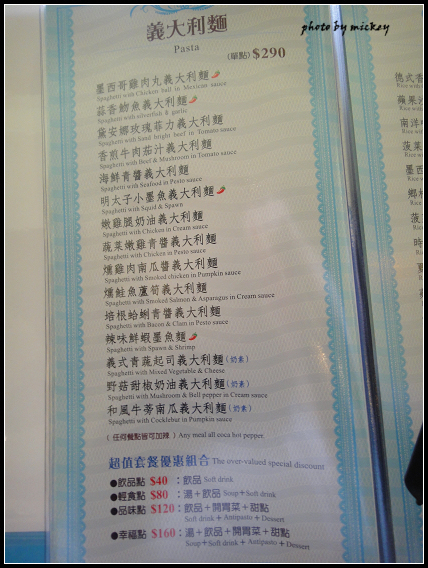 photo by mickey
義大利麵
Pasta
(單點) $290
墨西哥雞肉丸義大利麵
Spaghetti with Chicken ball in Mexican sauce
蒜香魩魚義大利麵
Spaghetti with silverfish & garlic
黛安娜玫瑰菲力義大利麵
Spaghetti with Sand bright beef in Tomato sauce
香煎牛肉茄汁義大利麵
Spaghetti with Beef & Mushroom in Tomato sauce
海鮮青醬義大利麵
Spaghetti with Seafood in Pesto sauce
明太子小墨魚義大利麵
Spaghetti with Squid & Spawn
嫩雞腿奶油義大利麵
Spaghetti with Chicken in Cream sauce
蔬菜嫩雞青醬義大利麵
Spaghetti with Chicken in Pesto sauce
燻雞肉南瓜醬義大利麵
Spaghetti with Smoked chicken in Pumpkin sauce
燻鮭魚蘆筍義大利麵
Spaghetti with Smoked Salmon & Asparagus in Cream sauce
培根蛤蜊青醬義大利麵
Spaghetti with Bacon & Clam in Pesto sauce
辣味鮮蝦墨魚麵
Spaghetti with Spawn & Shrimp
義式青蔬起司義大利麵(奶素)
Spaghetti with Mixed Vegetable & Cheese
野菇甜椒奶油義大利麵(奶素)
Spaghetti with Mushroom & Bell pepper in Cream sauce
和風牛蒡南瓜義大利麵(奶素)
Spaghetti with Cocklebur in Pumpkin sauce
( 任何餐點皆可加辣 ) Any meal all coca hot pepper.
超值套餐優惠組合 The over-valued special discount
●飲品點 $40 ：飲品 Soft drink
●輕食點 $80 ：湯+飲品 Soup+Soft drink
●品味點 $120：飲品+開胃菜+甜點
Soft drink + Antipasto + Dessert
●幸福點 $160：湯+飲品+開胃菜+甜點
Soup+Soft drink+Antipasto+Dessert